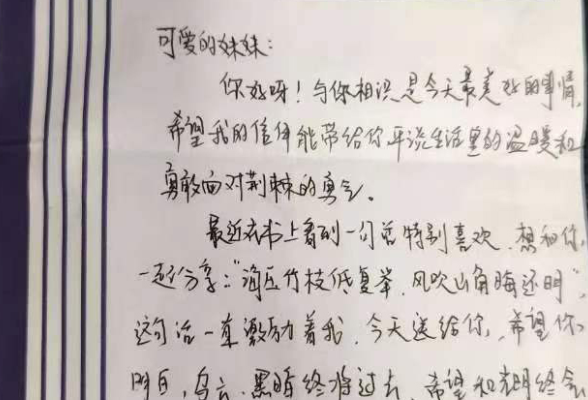 可爱的妹妹：
你好呀！与你相识是今天最美好的事情，
希望我的信件能带给你平淡生活里的温暖和
勇敢面对荆棘的勇气。
最近在书上看到一句话特别喜欢，想和你
一起分享："海压竹枝低复举，风吹山角晦还明"，
这句话一直激励着我，今天送给你，希望你
明白，乌云、黑暗终将过去，希望和光明终会